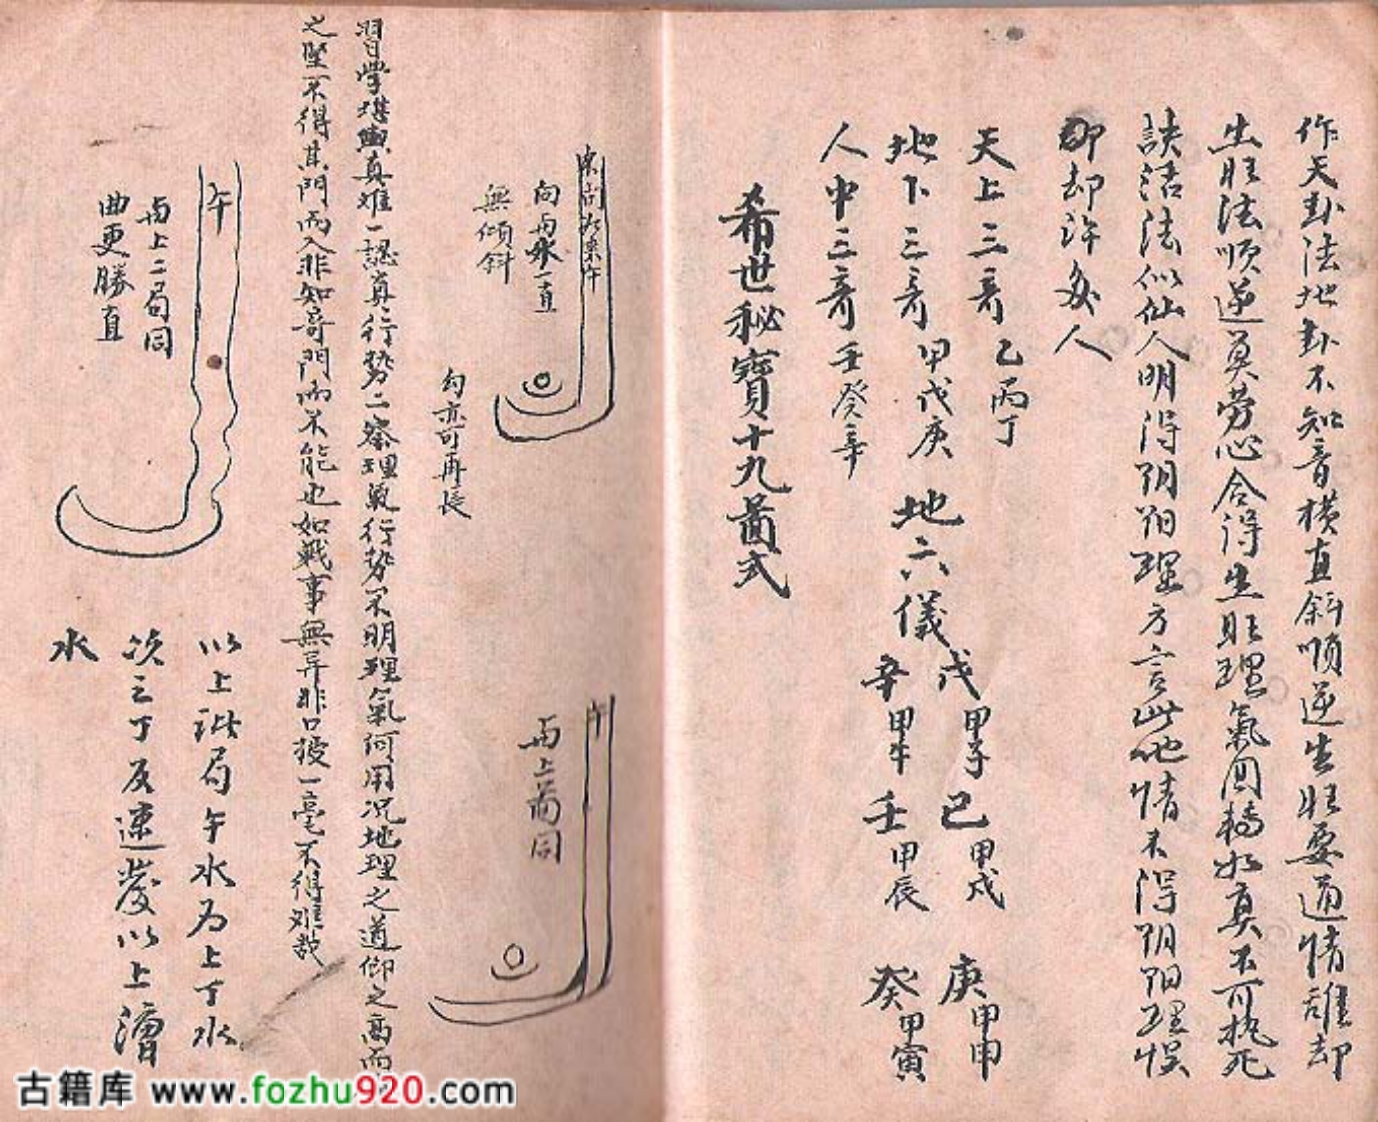 作天卦法地卦不知音橫直斜順逆生旺要通情誰却
生旺法順逆莫勞心合得生旺理氣回轉如真不可執死
訣活法似仙人明得阴阳理方言此地情未得阴阳理悞
却許多人
天上三奇 乙丙丁
地下三奇 甲戊庚
人中三奇 壬癸辛
地六儀
戊甲子 己甲戌 庚甲申
辛甲午 壬甲辰 癸甲寅
希世秘寶十九啚式
向
水一直
無傾斜
勾亦可再長
午
与上啚同
習學堪輿真难一認真行勢二察理氣行勢不明理氣何用况地理之道仰之高而
之堅不得其門而入非知哥門而不能也如戰事無异非口授一毫不得难哉
午
与上二局同
曲更勝直
以上
局午水为上丁水
次之丁反速發以上
水
古籍库 www.fozhu920.com